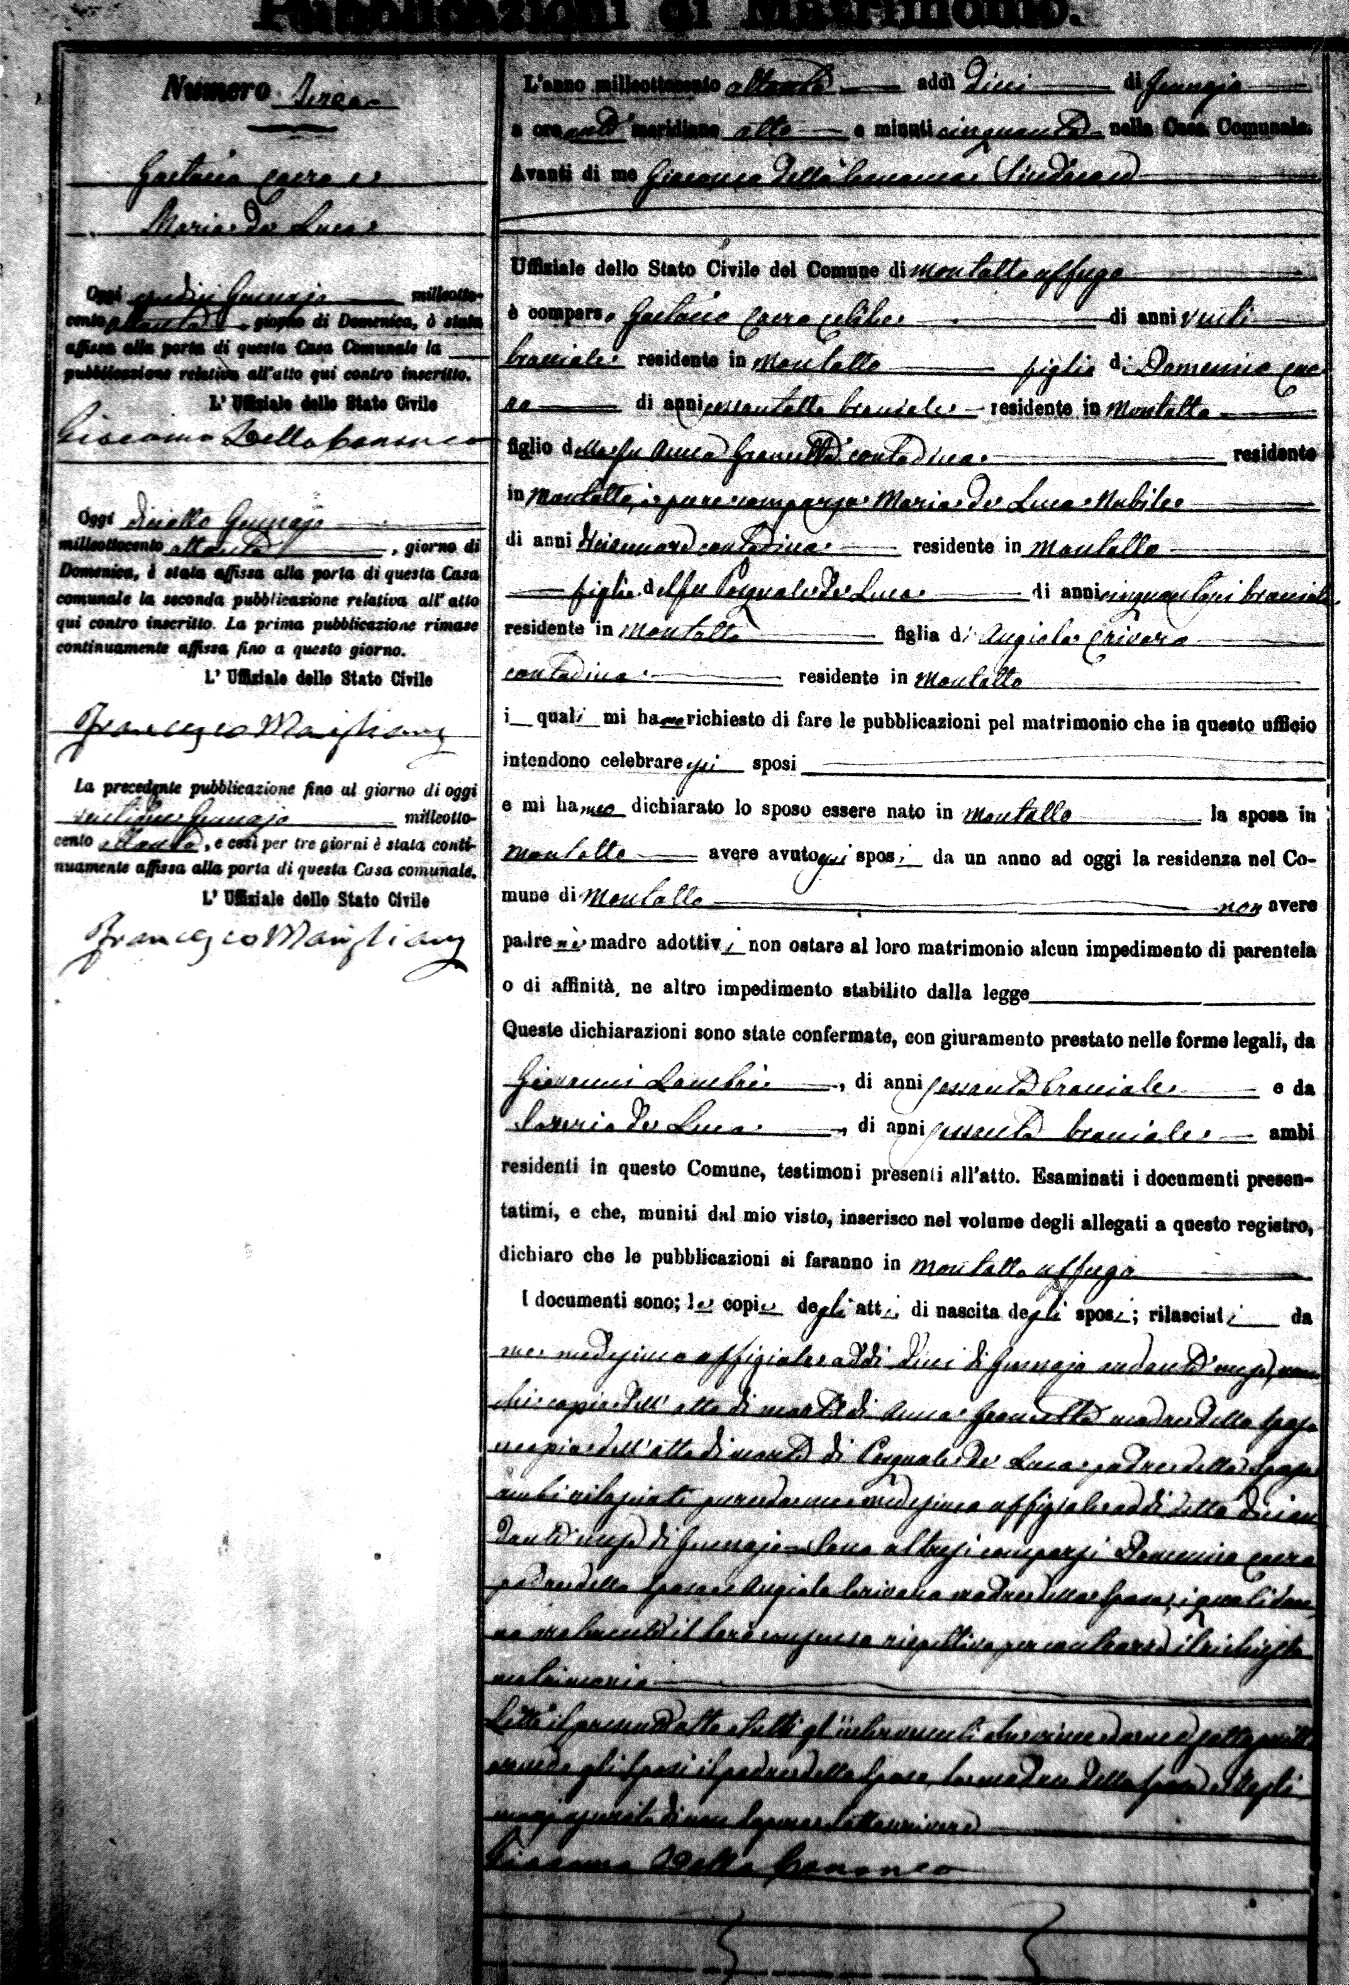 Pubblicazioni di Matrimonio.
Numero
Gaetano Cacro e
Maria de Luca
Oggi undici Gennajo millecotto-
cento ottanta, giorno di Domenica, è stata
affissa alla porta di questa Casa Comunale la
pubblicazione relativa all'atto qui contro inscritto.
L' Uffiziale dello Stato Civile
Giacomo Della Cananea
Oggi diciotto Gennajo
milleottocento ottanta, giorno di
Domenica, è stata affissa alla porta di questa Casa
comunale la seconda pubblicazione relativa all'atto
qui contro inscritto. La prima pubblicazione rimase
continuamente affissa fino a questo giorno.
L' Uffiziale dello Stato Civile
Francesco
La precedente pubblicazione fino al giorno di oggi
Gennajo milleotto-
cento ottanta, e così per tre giorni è stata conti-
nuamente affissa alla porta di questa Casa comunale.
L' Uffiziale dello Stato Civile
Francesco
L'anno milleottocento ottanta addì dieci di Gennajo
a ore anti meridiane otto e minuti cinquanta nella Casa Comunale.
Avanti di me Giacomo Della Cananea Sindaco
Uffiziale dello Stato Civile del Comune di Montalto Uffugo
è comparso Gaetano Cacro celibe di anni venti
bracciale residente in Montalto figlio di Domenico Cac
ro di anni sessantotto bracciale residente in Montalto
figlio della fu Anna contadina residente
in Montalto, è pure comparsa Maria de Luca Nubile
di anni diciannove contadina residente in Montalto
figlia del fu Pasquale de Luca di anni bracciale
residente in Montalto figlia di Angiola Crivaro
contadina residente in Montalto
i quali mi hanno richiesto di fare le pubblicazioni pel matrimonio che in questo ufficio
intendono celebrare essi sposi
e mi hanno dichiarato lo sposo essere nato in Montalto la sposa in
Montalto avere avuto essi sposi da un anno ad oggi la residenza nel Co-
mune di Montalto non avere
padre nè madre adottivi non ostare al loro matrimonio alcun impedimento di parentela
o di affinità, ne altro impedimento stabilito dalla legge
Queste dichiarazioni sono state confermate, con giuramento prestato nelle forme legali, da
Giovanni, di anni sessanta bracciale e da
Saverio de Luca, di anni sessanta bracciale ambi
residenti in questo Comune, testimoni presenti all'atto. Esaminati i documenti presen-
tatimi, e che, muniti dal mio visto, inserisco nel volume degli allegati a questo registro,
dichiaro che le pubblicazioni si faranno in Montalto Uffugo
I documenti sono; le copie degli atti di nascita degli sposi; rilasciati da
me medesimo uffiziale addì dieci di Gennajo andante mese,
copia dell'atto di morte di Anna madre dello sposo
e copia dell'atto di morte di Pasquale de Luca padre della sposa
ambi rilasciati pure da me medesimo uffiziale addì detto dieci an
dante mese di Gennajo. Sono altresì comparsi Domenico Cacro
padre dello sposo e Angiola Crivaro madre della sposa, i quali dan
no il loro consenso rispettivo per contrarre il richiesto
matrimonio
Letto il presente atto a tutti gl'intervenuti
gli sposi il padre dello sposo, la madre della sposa
di non sapere sottoscrivere
Giacomo Della Cananea